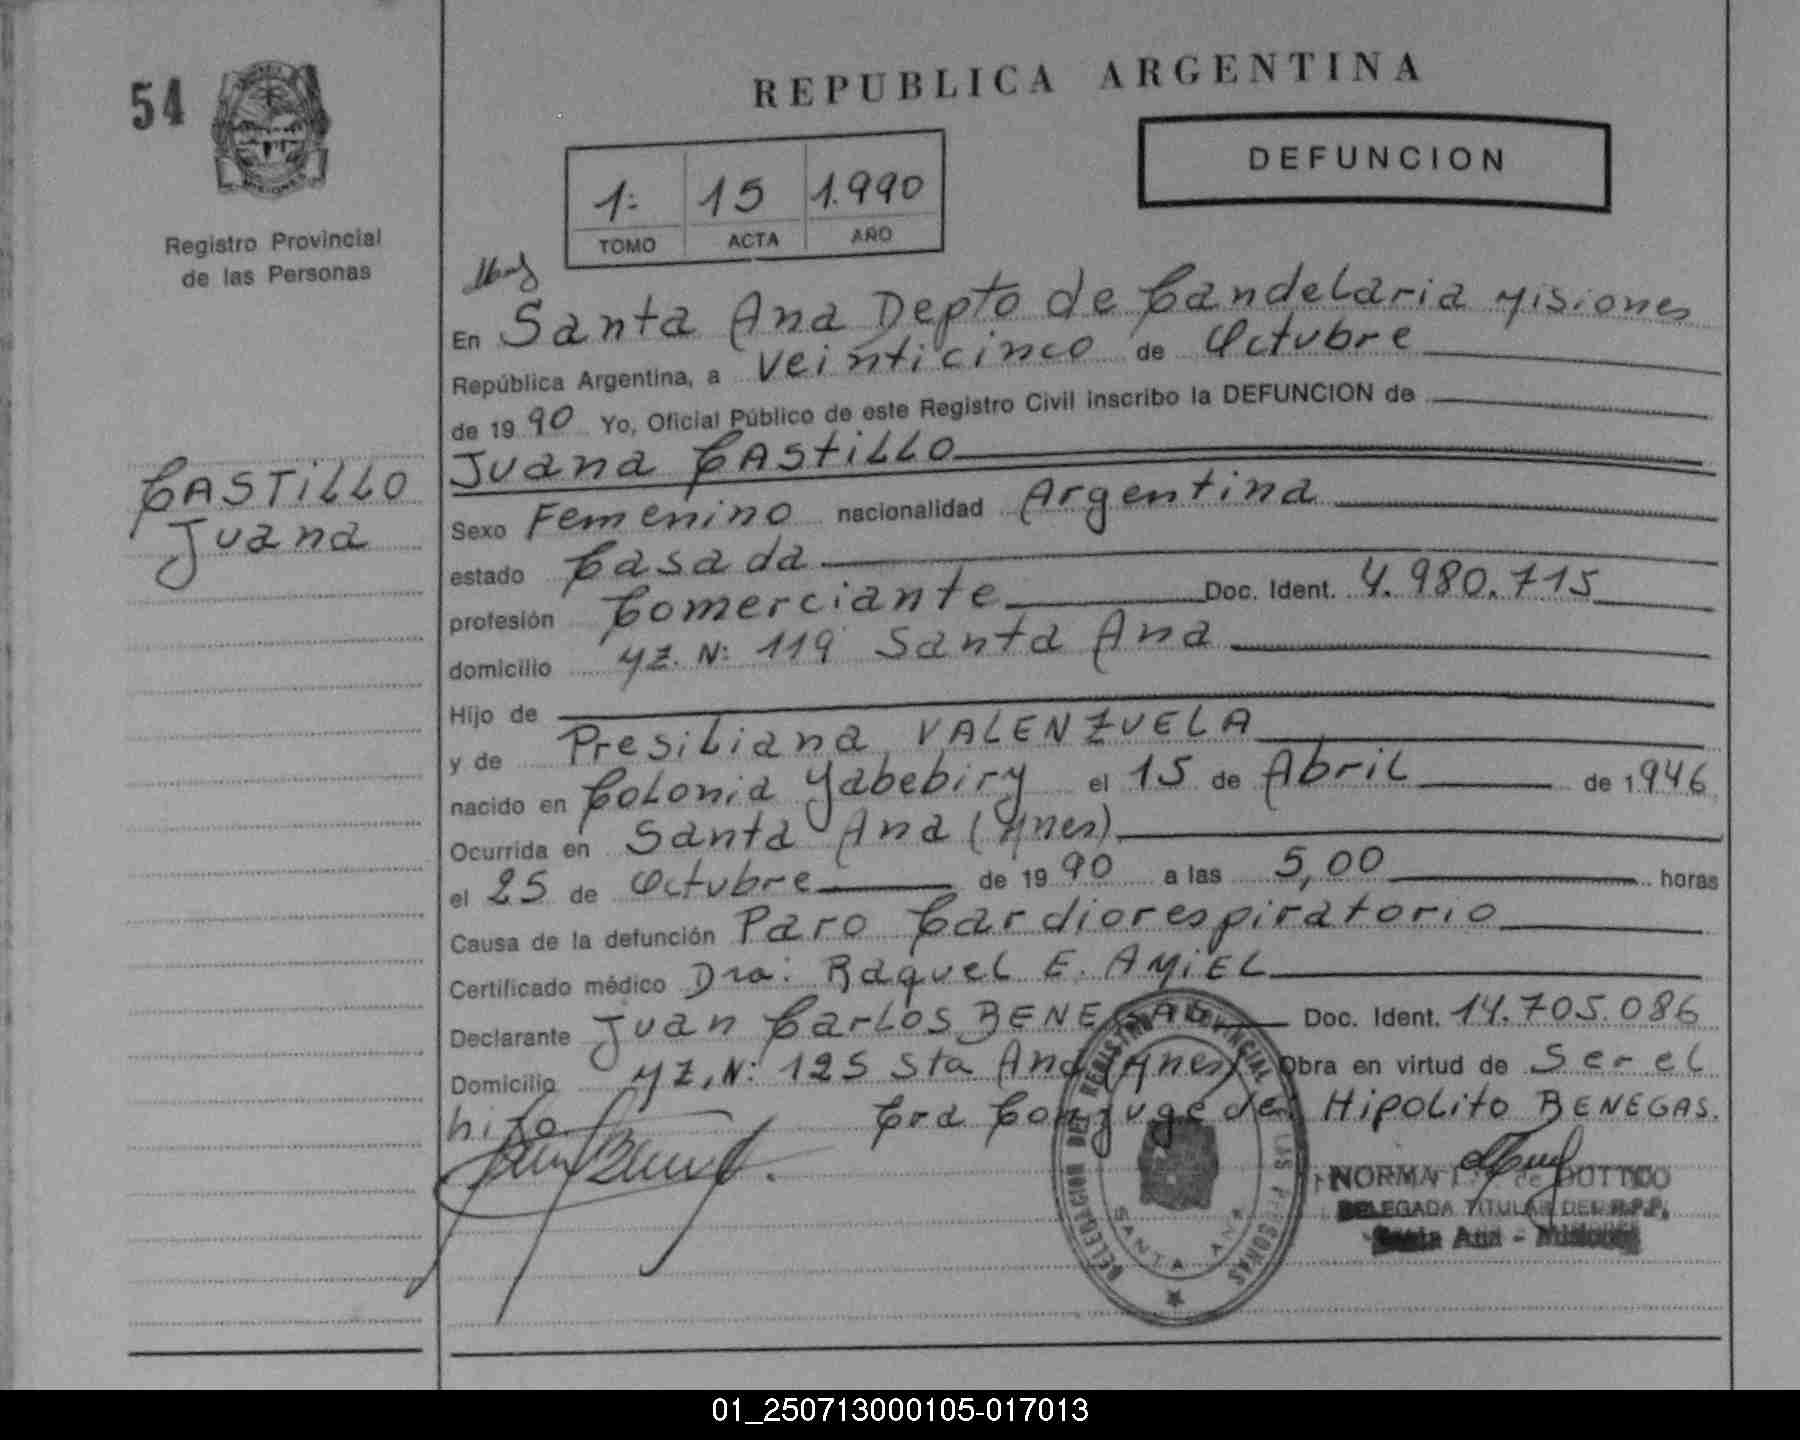 54
REPUBLICA ARGENTINA
DEFUNCION
1: 15 1.990
TOMO ACTA AÑO
Registro Provincial
de las Personas
En Santa Ana Depto de Candelaria Misiones
República Argentina, a Veinticinco de Octubre
de 1990 Yo, Oficial Público de este Registro Civil inscribo la DEFUNCION de
Juana CASTILLO
CASTILLO
Juana
Sexo Femenino nacionalidad Argentina
estado Casada
profesión Comerciante Doc. Ident. 4.980.715
domicilio MZ. N: 119 Santa Ana
Hijo de
y de Presiliana VALENZUELA
nacido en Colonia Yabebiry el 15 de Abril de 1946
Ocurrida en Santa Ana (Mnes)
el 25 de Octubre de 1990 a las 5,00 horas
Causa de la defunción Paro Cardiorespiratorio
Certificado médico Dra: Raquel E. AMIEL
Declarante Juan Carlos BENEGAS Doc. Ident. 14.705.086
Domicilio MZ, N: 125 Sta Ana (Mnes) Obra en virtud de Ser el
hijo Era Conjuge de: Hipolito BENEGAS.
DELEGACION DEL REGISTRO PROVINCIAL DE LAS PERSONAS
SANTA ANA
NORMA de
DELEGADA TITULAR DEL R.P.P.
Santa Ana - Misiones
01_250713000105-017013